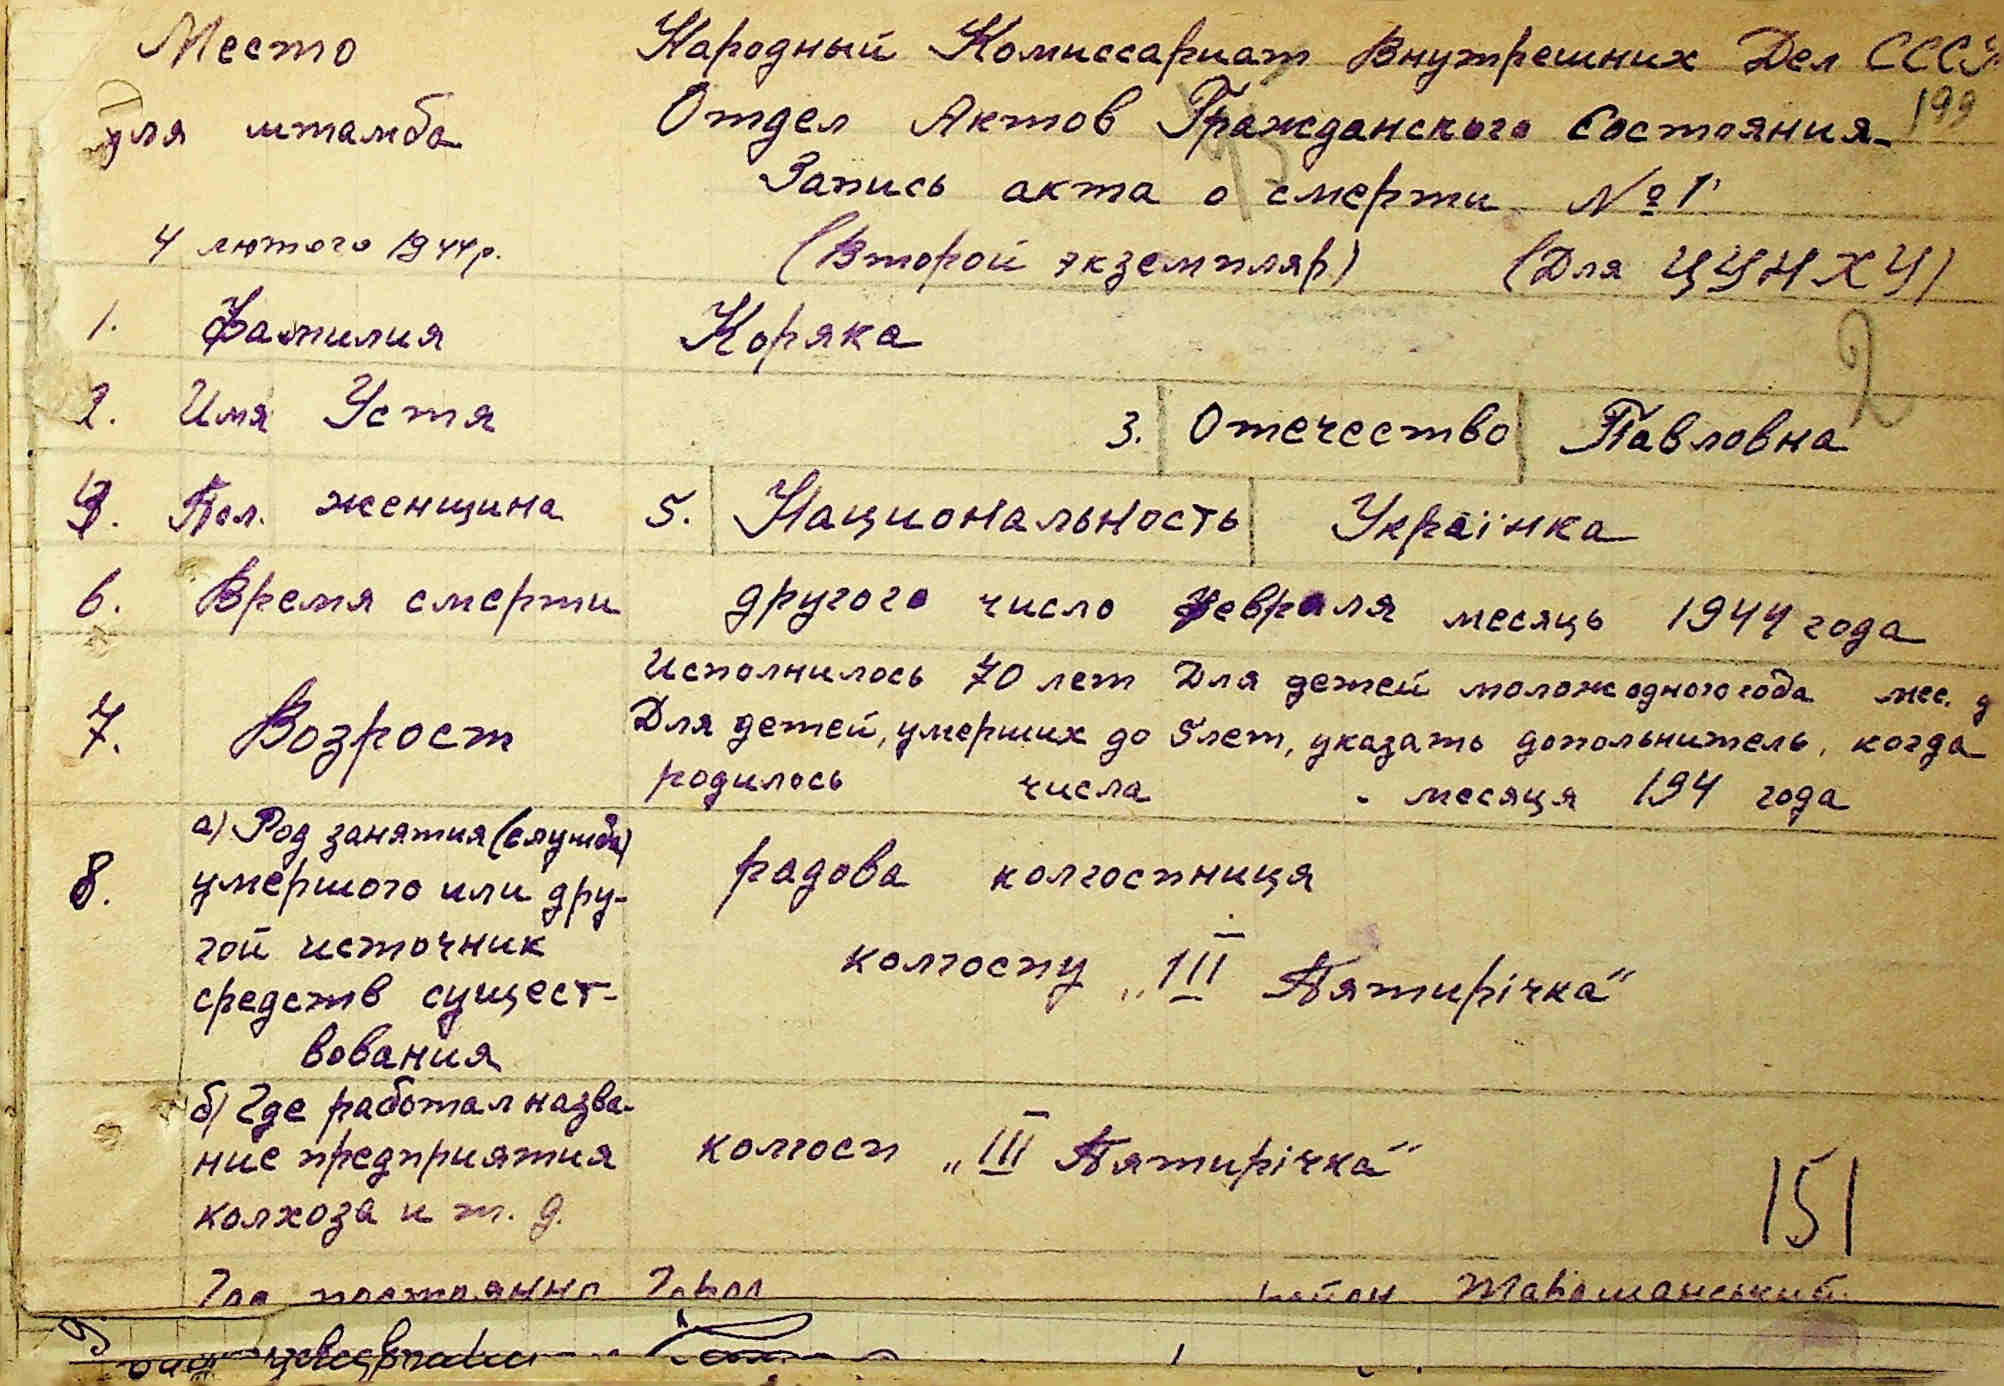 Место
для штамба
Народный Комиссариат Внутрешних Дел СССР
199
Отдел Актов Гражданского Состояния
Запись акта о смерти №1
4 лютого 1944р.
(Второй экземпляр) (Для ЦУНХУ)
1. Фамилия Коряка
2
2. Имя Устя 3. Отечество Павловна
4. Пол. женщина 5. Национальность Украінка
6. Время смерти другого число февраля месяць 1944 года
7. Возрост
Исполнилось 70 лет Для детей моложе одного года мес. д
Для детей, умерших до 5 лет, указать допольнитель. когда
родилось числа месяця 194 года
8. а) Род занятия (служба)
умершого или дру-
гой источник
средств сущест-
вования
радова колгоспниця
колгоспу „III Пятирічка"
б) Где работал назва-
ние предприятия
колхоза и т. д.
колгосп „III Пятирічка"
151
Где постоянно Город район Таращанський
9